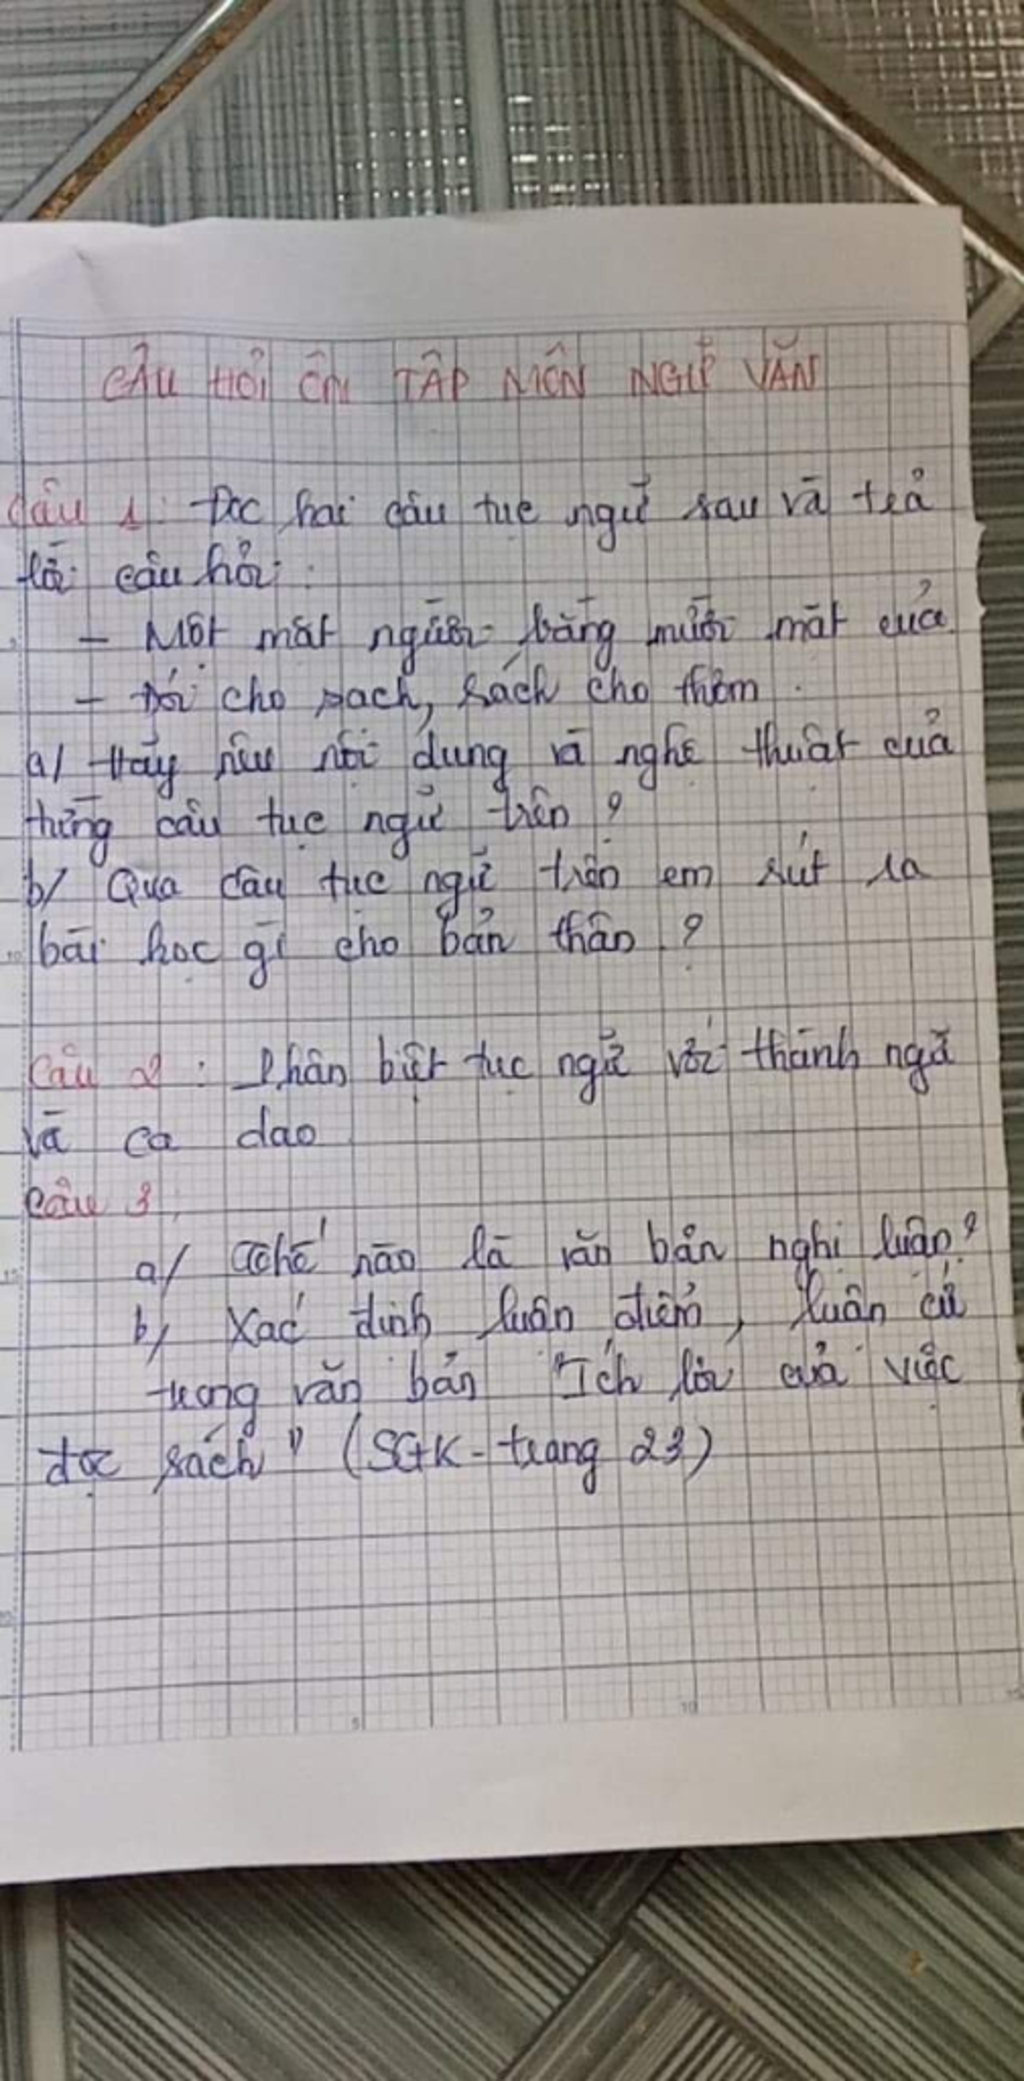 CÂU HỎI ÔN TẬP MÔN NGỮ VĂN
Câu 1: Đọc hai câu tục ngữ sau và trả
lời câu hỏi:
- Một mặt người bằng mười mặt của
- Đói cho sạch, rách cho thơm.
a/ Hãy nêu nội dung và nghệ thuật của
từng câu tục ngữ trên?
b/ Qua câu tục ngữ trên em rút ra
bài học gì cho bản thân?
Câu 2: Phân biệt tục ngữ với thành ngữ
và ca dao
Câu 3,
a/ Thế nào là văn bản nghị luận?
b/ Xác định luận điểm, luận cứ
trong văn bản "Ích lợi của việc
đọc sách" (SGK - trang 23)